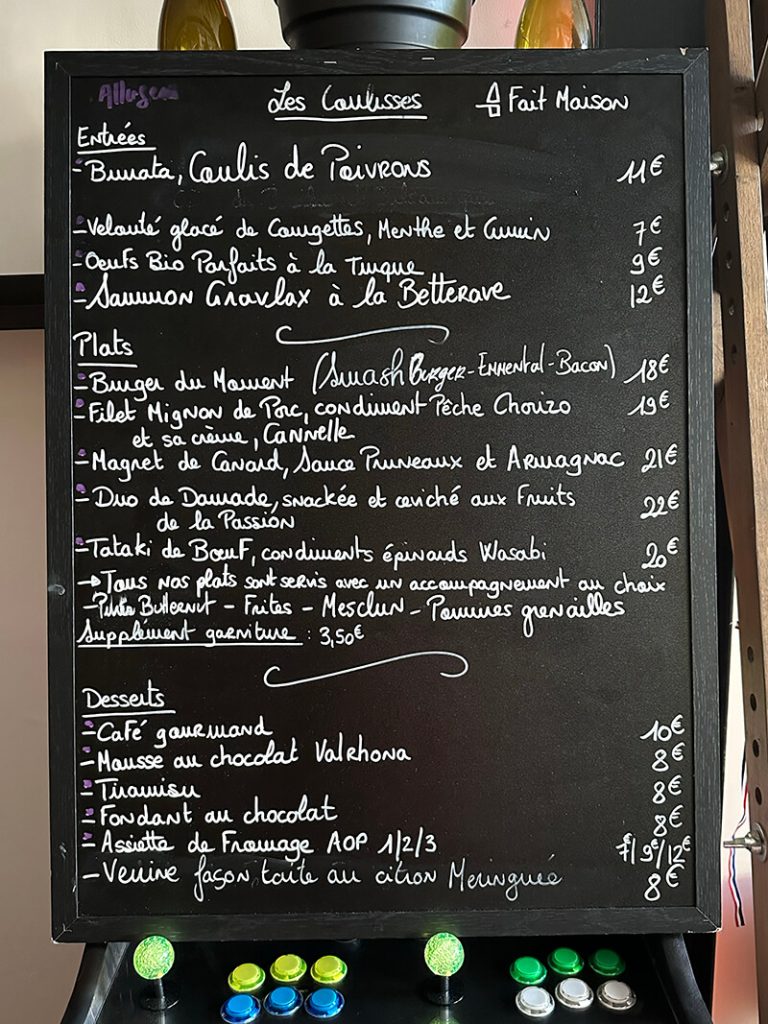 Les Coulisses Fait Maison
Entrées
- Burrata, Coulis de Poivrons 11€
- Velouté glacé de Courgettes, Menthe et Cumin 7€
- Oeufs Bio Parfaits à la Turque 9€
- Saumon Gravlax à la Betterave 12€
Plats
- Burger du Moment (Smash Burger - Emmental - Bacon) 18€
- Filet Mignon de Porc, condiment Pêche Chorizo 19€
et sa crème, Cannelle
- Magret de Canard, Sauce Pruneaux et Armagnac 21€
- Duo de Daurade, snackée et ceviché aux Fruits 22€
de la Passion
- Tataki de Bœuf, condiments épinards Wasabi 20€
→ Tous nos plats sont servis avec un accompagnement au choix
- Butternut - Frites - Mesclun - Pommes grenailles
Supplément garniture : 3,50€
Desserts
- Café gourmand 10€
- Mousse au chocolat Valrhona 8€
- Tiramisu 8€
- Fondant au chocolat 8€
- Assiette de Fromage AOP 1/2/3 7€/9€/12€
- Verrine façon tarte au citron Meringuée 8€